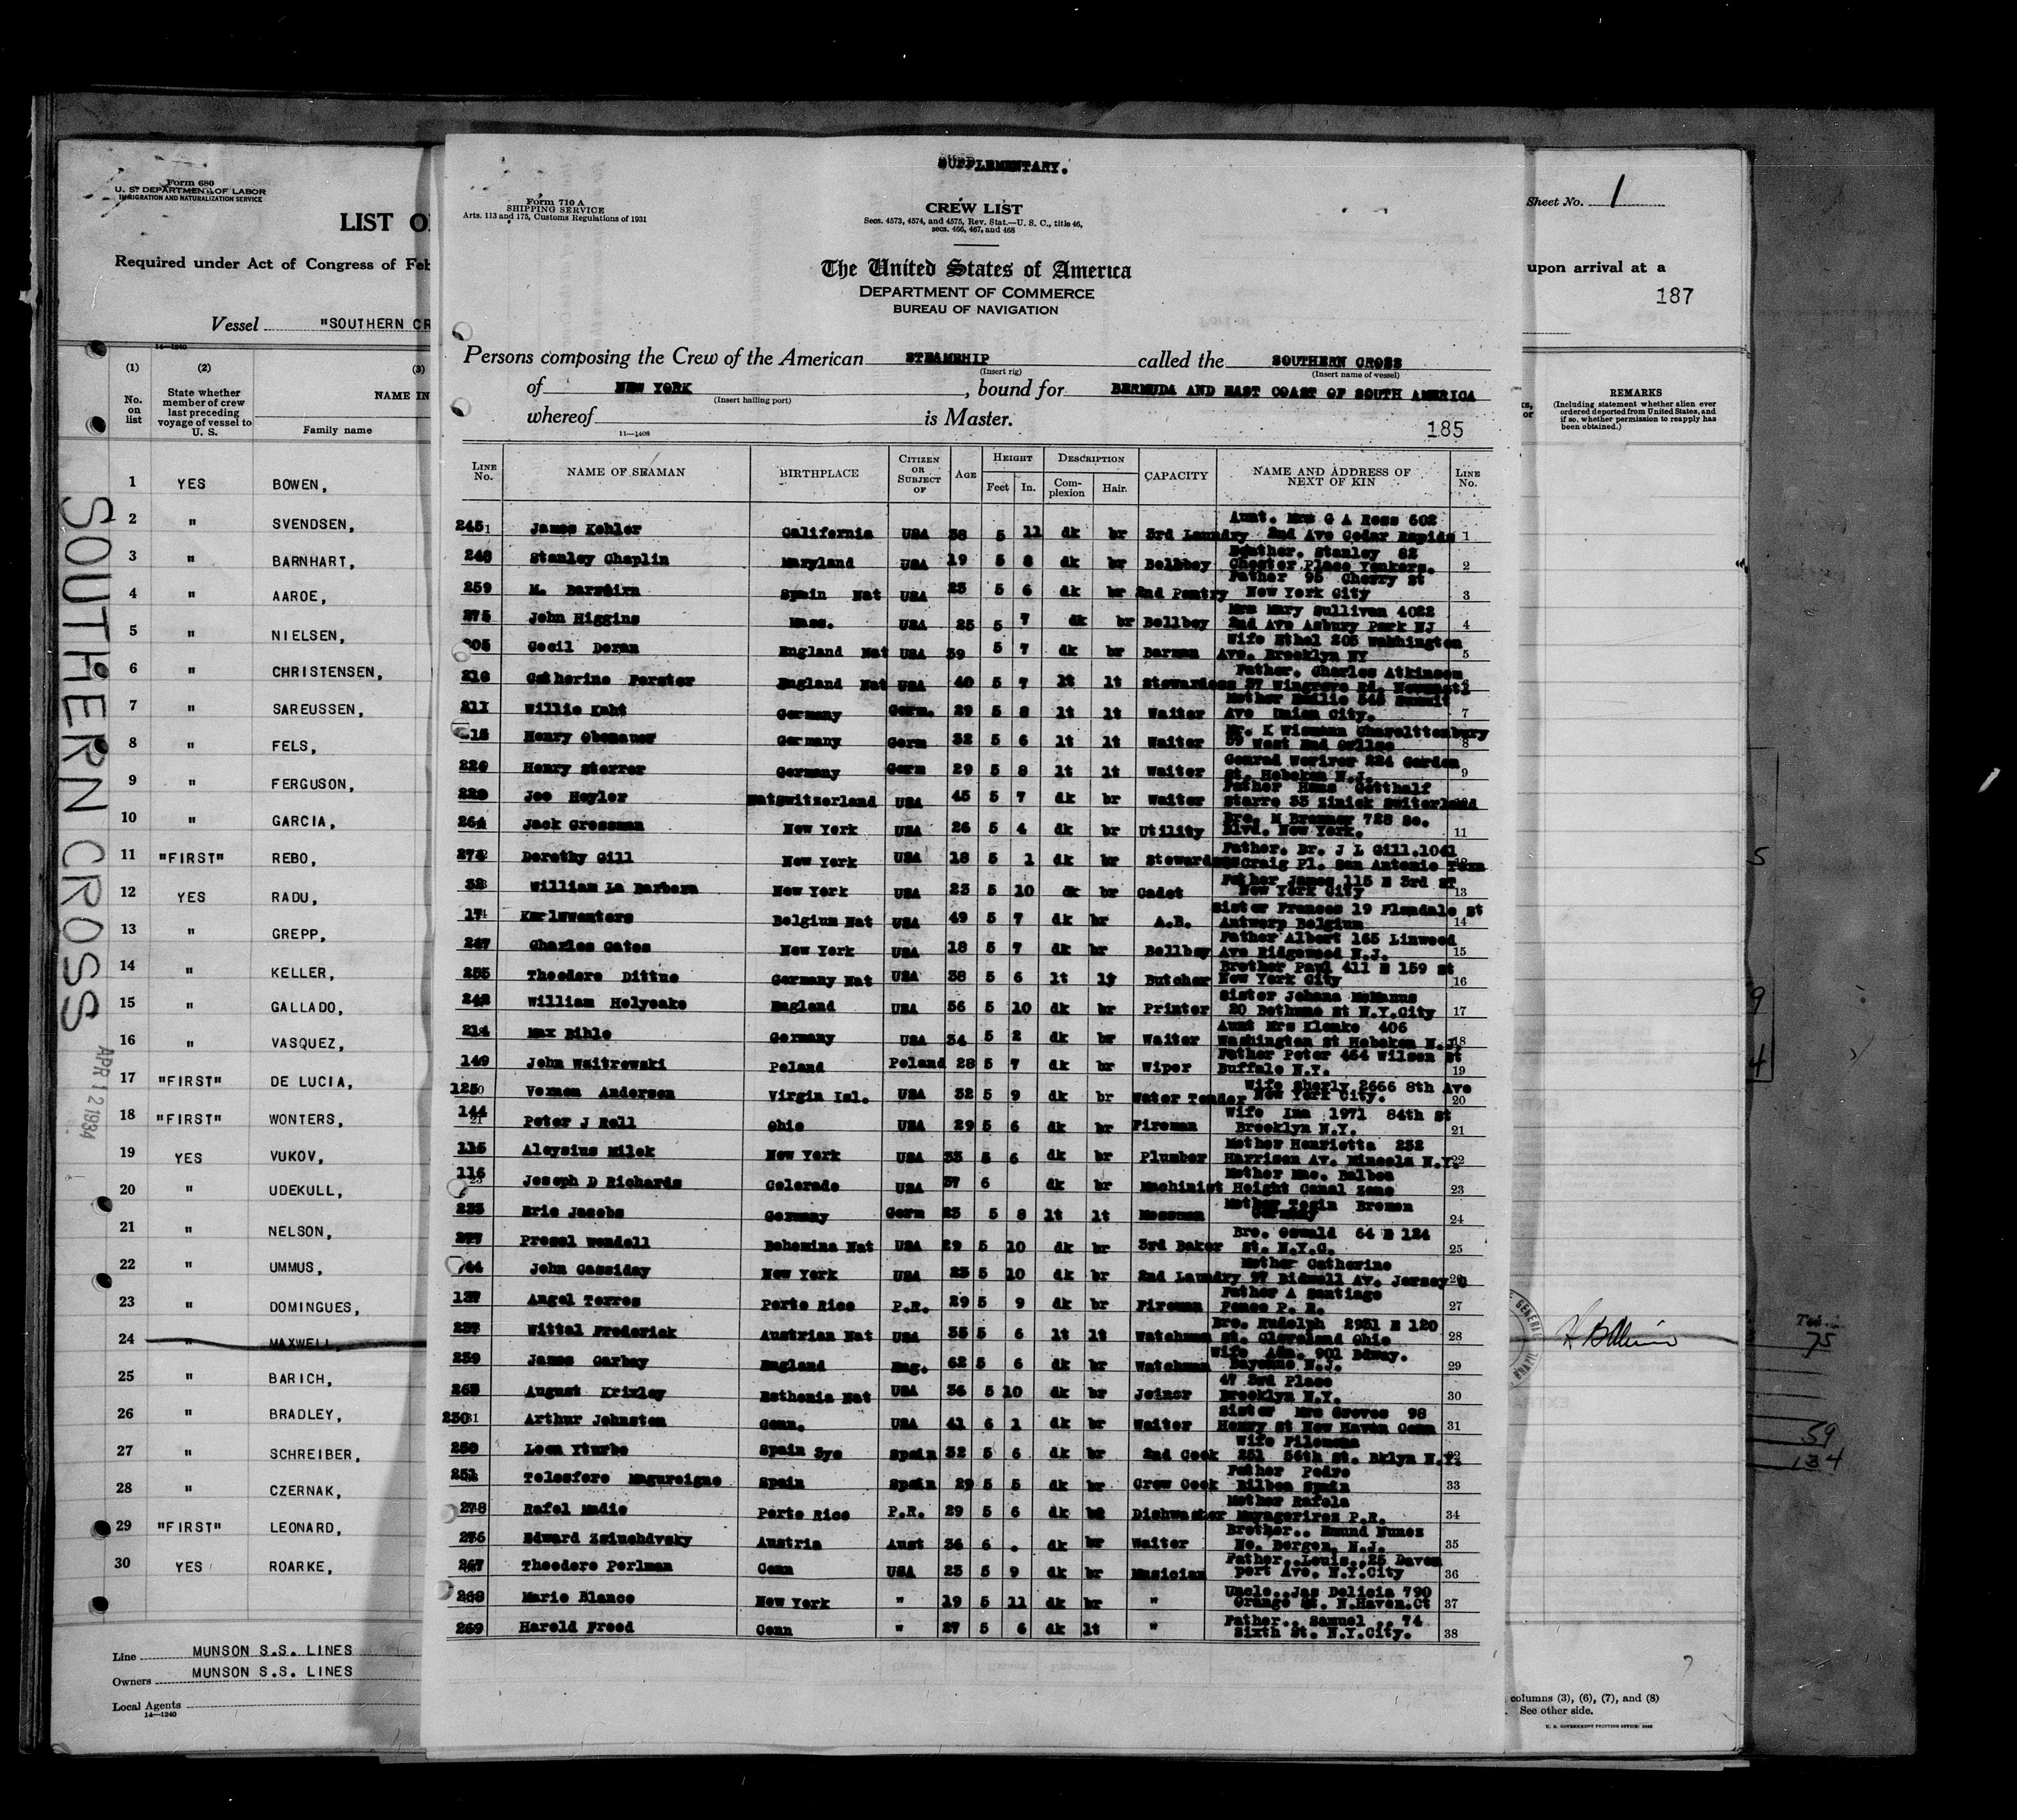 Form 680
U. S. DEPARTMENT OF LABOR
IMMIGRATION AND NATURALIZATION SERVICE
LIST O
Required under Act of Congress of Feb
Vessel "SOUTHERN CR
14—1240
(1) (2) (3)
No. on list
State whether member of crew last preceding voyage of vessel to U. S.
NAME IN
Family name
1 YES BOWEN,
2 " SVENDSEN,
3 " BARNHART,
4 " AAROE,
5 " NIELSEN,
6 " CHRISTENSEN,
7 " SAREUSSEN,
8 " FELS,
9 " FERGUSON,
10 " GARCIA,
11 "FIRST" REBO,
12 YES RADU,
13 " GREPP,
14 " KELLER,
15 " GALLADO,
16 " VASQUEZ,
17 "FIRST" DE LUCIA,
18 "FIRST" WONTERS,
19 YES VUKOV,
20 " UDEKULL,
21 " NELSON,
22 " UMMUS,
23 " DOMINGUES,
24 " MAXWELL,
25 " BARICH,
26 " BRADLEY,
27 " SCHREIBER,
28 " CZERNAK,
29 "FIRST" LEONARD,
30 YES ROARKE,
Line MUNSON S.S. LINES
Owners MUNSON S.S. LINES
Local Agents
14—1240
SOUTHERN CROSS
APR 12 1934
SUPPLEMENTARY.
Form 710 A
SHIPPING SERVICE
Arts. 113 and 175, Customs Regulations of 1931
CREW LIST
Secs. 4573, 4574, and 4575, Rev. Stat.—U. S. C., title 46,
secs. 466, 467, and 468
The United States of America
DEPARTMENT OF COMMERCE
BUREAU OF NAVIGATION
Persons composing the Crew of the American STEAMSHIP called the SOUTHERN CROSS
(Insert rig) (Insert name of vessel)
of NEW YORK, bound for BERMUDA AND EAST COAST OF SOUTH AMERICA
(Insert hailing port)
whereof is Master.
11—1408
185
LINE No. NAME OF SEAMAN BIRTHPLACE CITIZEN OR SUBJECT OF AGE HEIGHT Feet In. DESCRIPTION Complexion Hair. CAPACITY NAME AND ADDRESS OF NEXT OF KIN LINE No.
245 James Kohler California USA 38 5 11 dk br 3rd Laundry Aunt. Mrs G A Ross 602 2nd Ave Cedar Rapids 1
Stanley Chaplin Maryland USA 19 5 8 dk br Bellboy Stanley 82 Chester Place Yonkers. 2
259 M. Spain Nat USA 23 5 6 dk br 2nd Pantry Father 95 Cherry St New York City 3
275 John Higgins Mass. USA 25 5 7 dk br Bellboy Mrs Mary Sullivan 4022 2nd Ave Asbury Park NJ 4
Cecil Doran England Nat USA 39 5 7 dk br Barman Wife Ethel 205 Washington Ave. Brooklyn NY 5
216 Catherine Forster England Nat USA 40 5 7 lt lt Stewardess Father. Charles Atkinson 37 Wingrove Rd.
211 Willie Germany Germ. 29 5 8 lt lt Waiter Mother 545 Summit Ave Union City. 7
Henry Germany Germ 32 5 6 lt lt Waiter 8
Henry Germany Germ 29 5 8 lt lt Waiter Conrad 224 Garden St. Hoboken N.J. 9
Joe Heyler Switzerland USA 45 5 7 dk br Waiter Father Hans Gotthalf
264 Jack Grossman New York USA 26 5 4 dk br Utility Bro. M 725 So. Blvd. New York. 11
Dorothy Gill New York USA 18 5 1 dk br Stewardess Father. Dr. J L Gill. 1041 Craig Pl. San Antonio Texa
William La Barbera New York USA 23 5 10 dk br Cadet Father James 115 E 3rd ST New York City 13
Belgium Nat USA 49 5 7 dk br A.B. Sister Frances 19 St Antwerp Belgium 14
247 Charles Gates New York USA 18 5 7 dk br Bellboy Father Albert 165 Linwood Ave Ridgewood N.J. 15
255 Theodore Dittne Germany Nat USA 38 5 6 lt lt Butcher Brother Paul 411 E 159 st New York City 16
William Holyoake England USA 56 5 10 dk br Printer Sister Johana McManus 20 Bethune St N.Y.City 17
214 Max Bihle Germany USA 34 5 2 dk br Waiter Aunt Mrs Klenke 406 Washington St Hoboken N.J. 18
149 John Waitrowski Poland Poland 28 5 7 dk br Wiper Father Peter 464 Wilson St Buffalo N.Y. 19
125 Vernon Anderson Virgin Isl. USA 32 5 9 dk br Water Tender Wife 2666 8th Ave New York City. 20
144 Peter J Rell Ohio USA 29 5 6 dk br Fireman Wife 1971 84th St Brooklyn N.Y. 21
115 Aloysius Milek New York USA 33 5 6 dk br Plumber Mother Henrietta 232 Harrison Av. Mineola N.Y. 22
116 Joseph D Richards Colorado USA 37 6 dk br Machinist Mother Mae. Balboa Height Canal Zone 23
Eric Jacobs Germany Germ 23 5 8 lt lt Messman Mother Bremen Germany 24
Wendell Nat USA 29 5 10 dk br 3rd Baker Bro. Oswald 64 E 124 St. N.Y.C. 25
John Cassiday New York USA 23 5 10 dk br 2nd Laundry Mother Catherine 97 Bidwell Av. Jersey C
137 Angel Torres Porto Rico P.R. 29 5 9 dk br Fireman Father A Santiago Ponce P. R. 27
Wittal Frederick Austrian Nat USA 35 5 6 lt lt Watchman Bro. Rudolph 2951 E 120 St. Cleveland Ohio 28
239 James England Eng. 62 5 6 dk br Watchman Wife Ada. 901 Bdway. Bayonne N.J. 29
August Krixley Esthonia Nat USA 36 5 10 dk br Joiner 47 3rd Place Brooklyn N.Y. 30
230 Arthur Johnston Conn. USA 41 6 1 dk br Waiter Sister Mrs Groves 98 Henry St New Haven Conn 31
250 Leon Yturbe Spain Spain 32 5 6 dk br 2nd Cook Wife Filomena 251 56th St. Bklyn N.Y.
251 Telesfero Spain Spain 29 5 5 dk br Crew Cook Father Pedro Bilboa Spain 33
278 Rafel Madie Porto Rico P.R. 29 5 6 dk Dishwasher Mother Rafela P.R. 34
276 Edward Austria Aust 36 6 dk br Waiter Brother.. Emund Nunes No. Bergen, N.J. 35
267 Theodore Perlman Conn USA 23 5 9 dk br Musician Father..Louis..25 Daven port Ave. N.Y.City 36
268 Mario Blanco New York " 19 5 11 dk br " Uncle..Jas Delicia 790 Orange St. N.Haven.Ct 37
269 Harold Freed Conn " 27 5 6 dk lt " Father.. Samuel .. 74 Sixth St. N.Y.City. 38
Sheet No. 1
upon arrival at a
187
REMARKS
(Including statement whether alien ever ordered deported from United States, and if so, whether permission to reapply has been obtained.)
GENERAL
BRAZIL
columns (3), (6), (7), and (8)
See other side.
U. S. GOVERNMENT PRINTING OFFICE
5
9
4
75
59
134